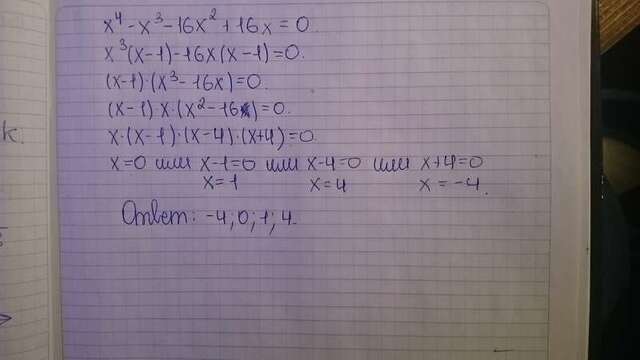 x⁴ - x³ - 16x² + 16x = 0.
x³(x-1) - 16x(x-1) = 0.
(x-1)·(x³ - 16x) = 0.
(x-1)·x·(x² - 16) = 0.
x·(x-1)·(x-4)·(x+4) = 0.
x=0 или x-1=0 или x-4=0 или x+4=0
x=1 x=4 x = -4.
Ответ: -4; 0; 1; 4.
к.